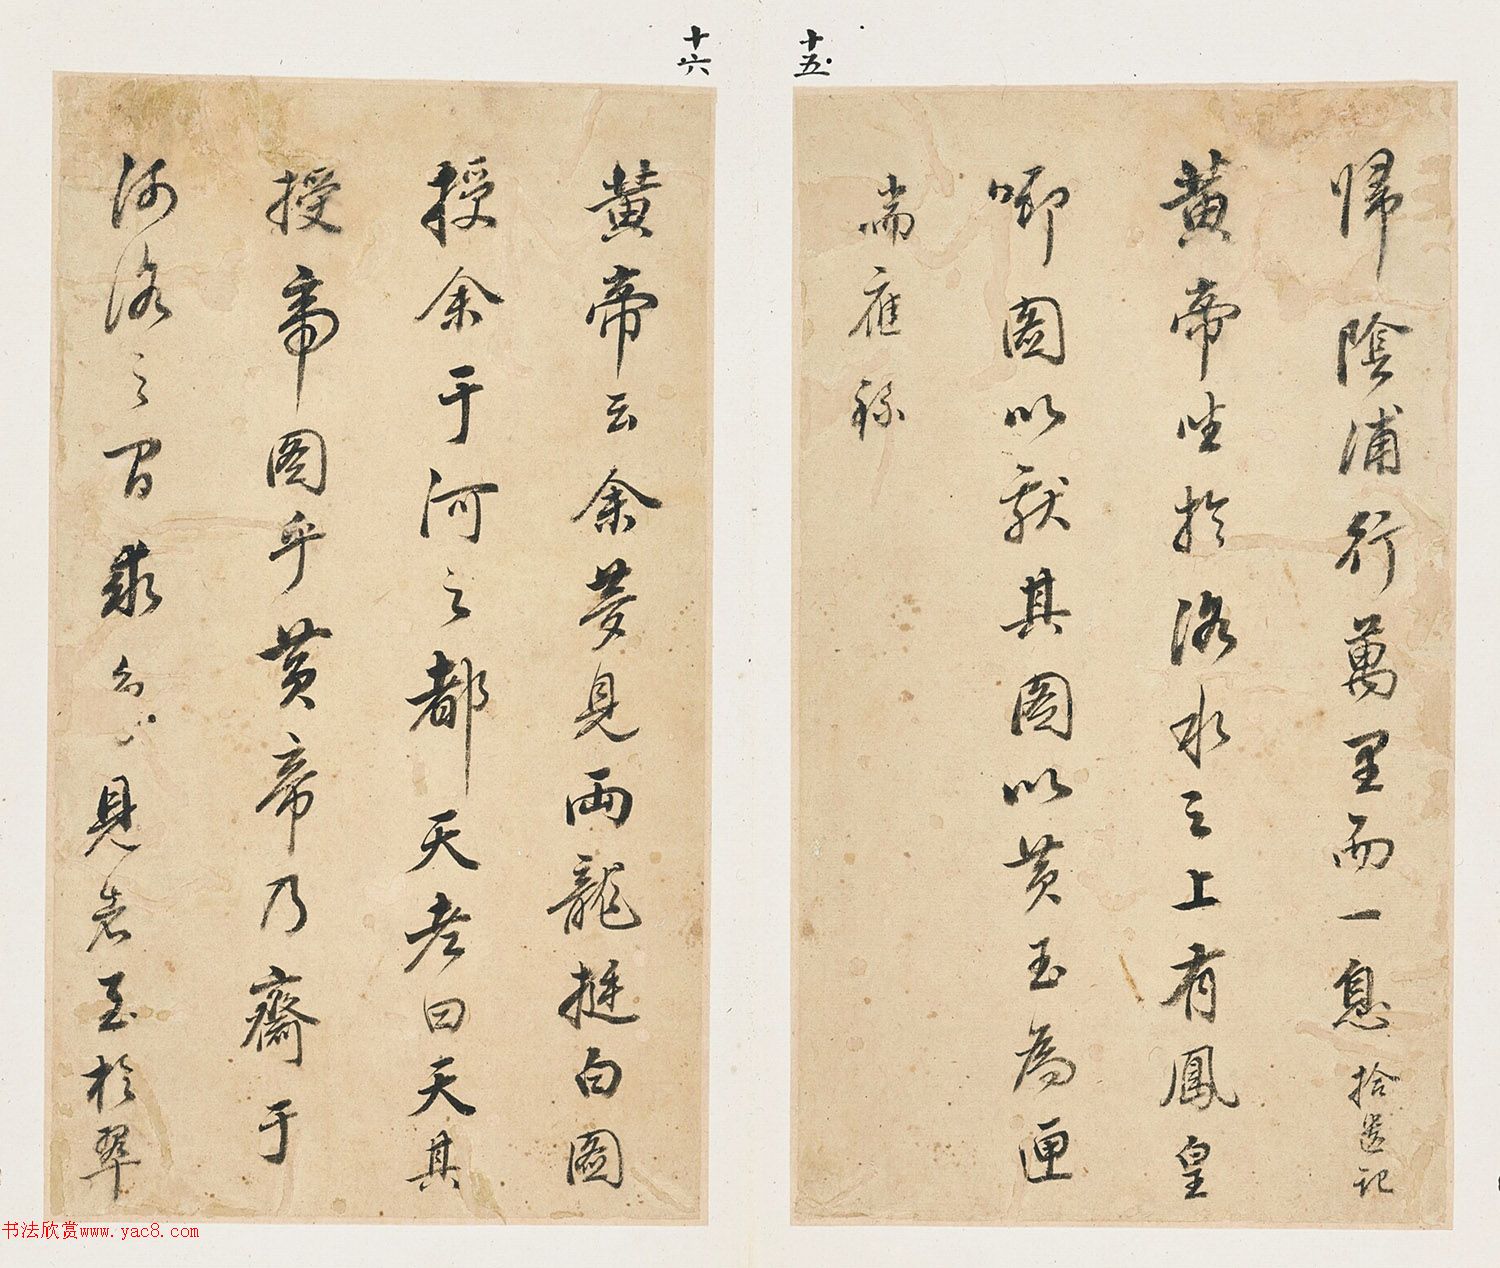 十五
歸陰浦行萬里而一息 拾遺記
黄帝坐於洛水之上有鳳皇
啣圖以獻其圖以黄玉為匣
瑞應
十六
黄帝云余夢見兩龍挺白圖
授余于河之都天老曰天其
授帝圖乎黄帝乃齋于
河洛之間求象見者至於翠
书法欣赏www.yac8.com